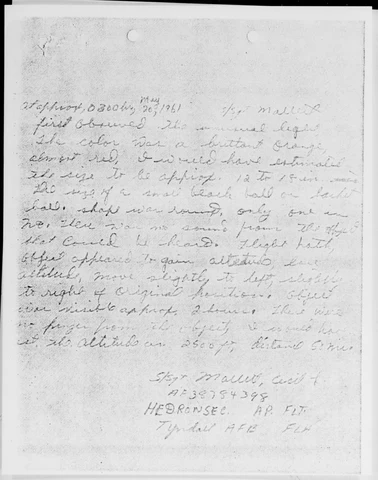 at approx, 0300 hrs, May 20, 1961 S/Sgt Mallett
first observed the unusual light
The color was a brillant Orange,
almost red, I would have estimated
the size to be approx. 12 to 18 in
the size of a small beach ball or basket
ball. shape was round, only one in
no. There was no sound from the object
that could be heard. Flight path,
object appeared to gain altetude, lose
altetude, move slightly to left,
to right of original position. Object
was visible approx, 2 hours. There was
no from the object, I would
est. the altitude as 2500 ft, distance 5 mi.
S/Sgt Mallett, Cecil
AF38784398
HEDRONSEC AP. FLT.
Tyndall AFB Fla